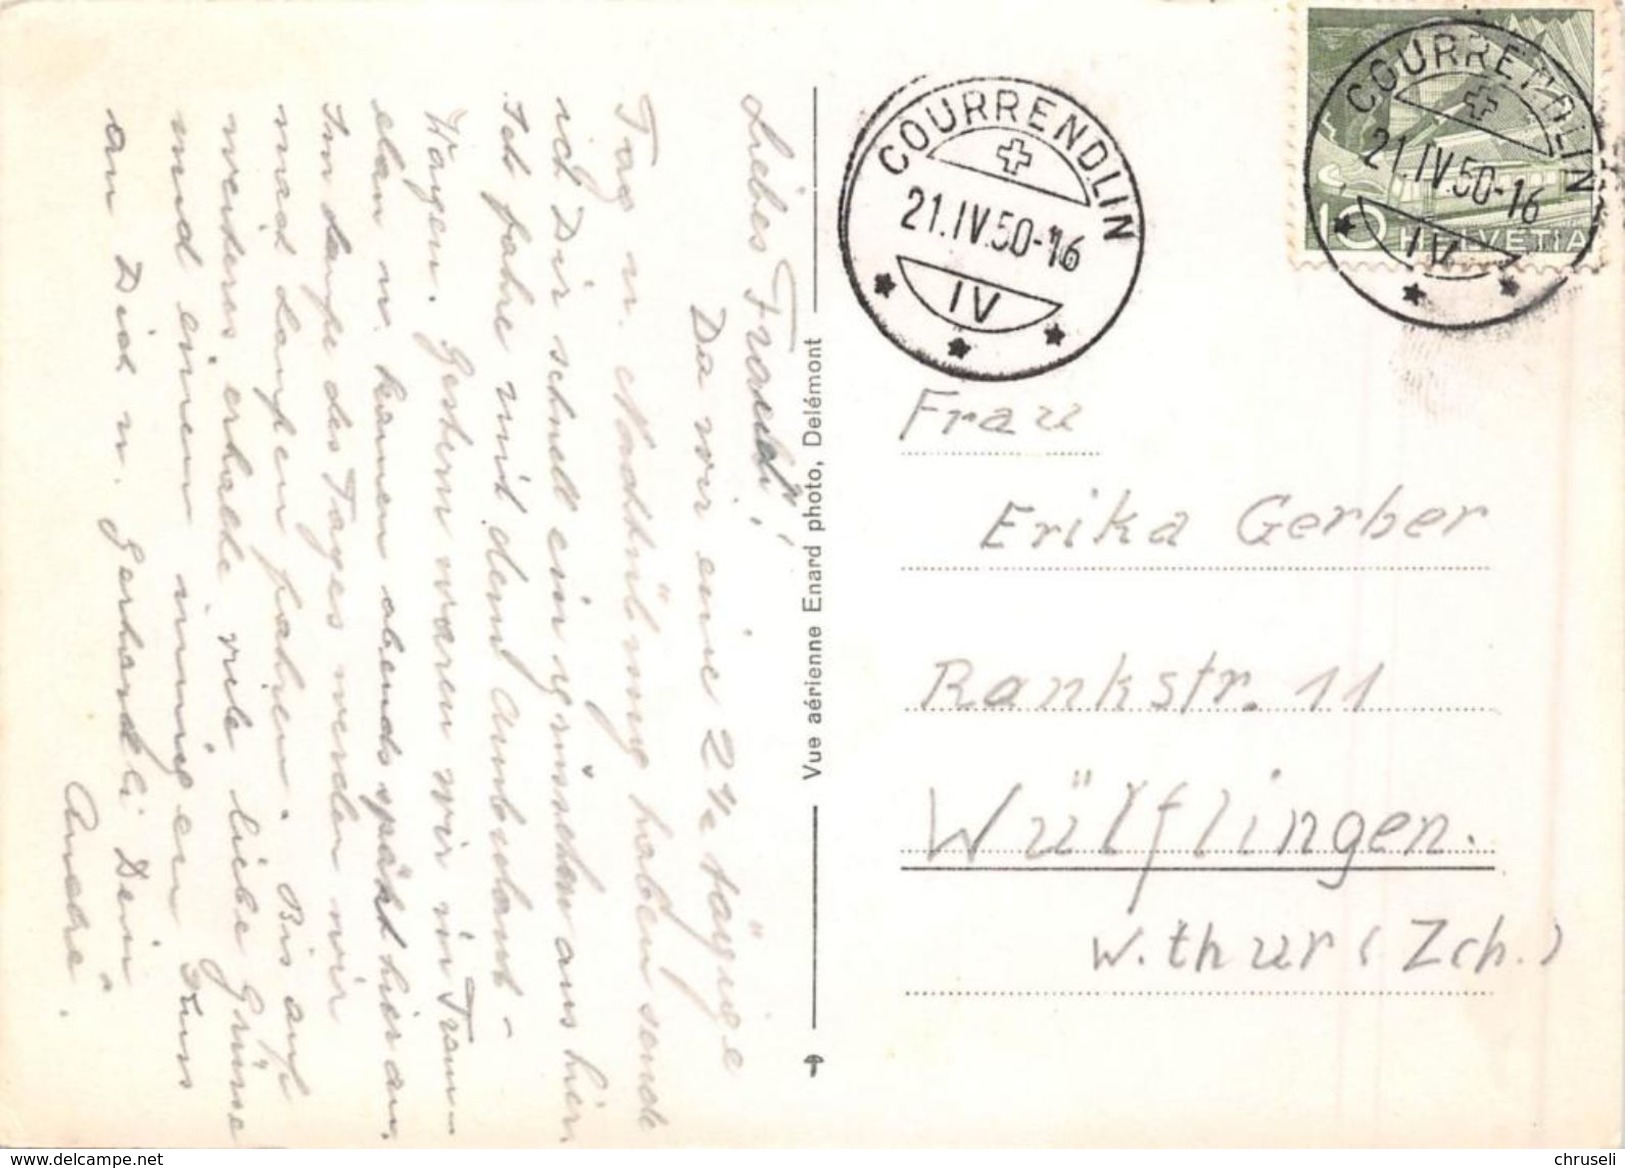 Liebes Fraueli!
Da wir eine 2½ tägige
Tag u. Nachtübung haben sende
ich Dir schnell ein grüsschen aus hier.
Ich fahre mit dem Ambulant-
Wagen. Gestern waren wir in Tram-
elan u. kamen abends spät hier an.
Im laufe des Tages werden wir
nach Laufen fahren. Bis auf
weiteres erhalte viele liebe Grüsse
und einen innigen Kuss
an Dich u. Gerhardli Dein
André.
Vue aérienne Enard photo, Delémont
COURRENDLIN
21.IV.50-16
IV
COURRENDLIN
21.IV.50-16
IV
10 HELVETIA
Frau
Erika Gerber
Rankstr. 11
Wülflingen.
W.thur (Zch.)
www.delcampe.net
chruseli